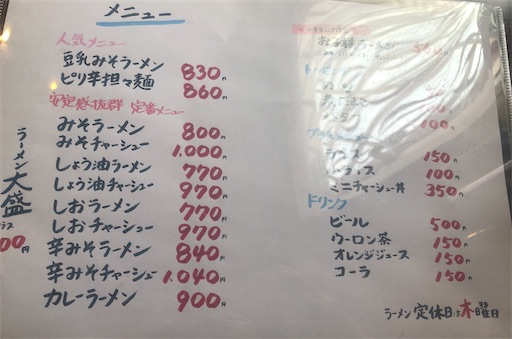 メニュー
人気メニュー
豆乳みそラーメン 830円
ピリ辛担々麺 860円
安定感抜群 定番メニュー
みそラーメン 800円
みそチャーシュー 1,000円
しょう油ラーメン 770円
しょう油チャーシュー 970円
しおラーメン 770円
しおチャーシュー 970円
辛みそラーメン 840円
辛みそチャーシュー 1,040円
カレーラーメン 900円
ラーメン大盛
00円
お子様ラーメン
100円
ライス 150円
100円
ミニチャーシュー丼 350円
ドリンク
ビール 500円
ウーロン茶 150円
オレンジジュース 150円
コーラ 150円
ラーメン 定休日は木曜日